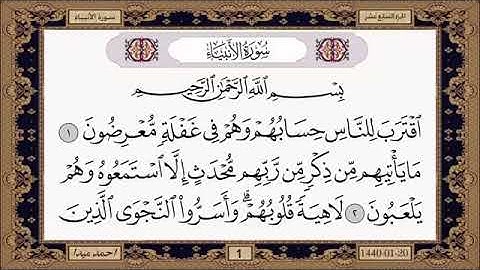 الجزء السابع عشر
سورة الأنبياء
سُورَةُ الأَنبِيَاءِ
بِسْمِ ٱللَّهِ ٱلرَّحْمَٰنِ ٱلرَّحِيمِ
ٱقْتَرَبَ لِلنَّاسِ حِسَابُهُمْ وَهُمْ فِى غَفْلَةٍ مُّعْرِضُونَ ١
مَا يَأْتِيهِم مِّن ذِكْرٍ مِّن رَّبِّهِم مُّحْدَثٍ إِلَّا ٱسْتَمَعُوهُ وَهُمْ
يَلْعَبُونَ ٢ لَاهِيَةً قُلُوبُهُمْ ۗ وَأَسَرُّوا۟ ٱلنَّجْوَى ٱلَّذِينَ
1440-01-20
1
احمد عيد